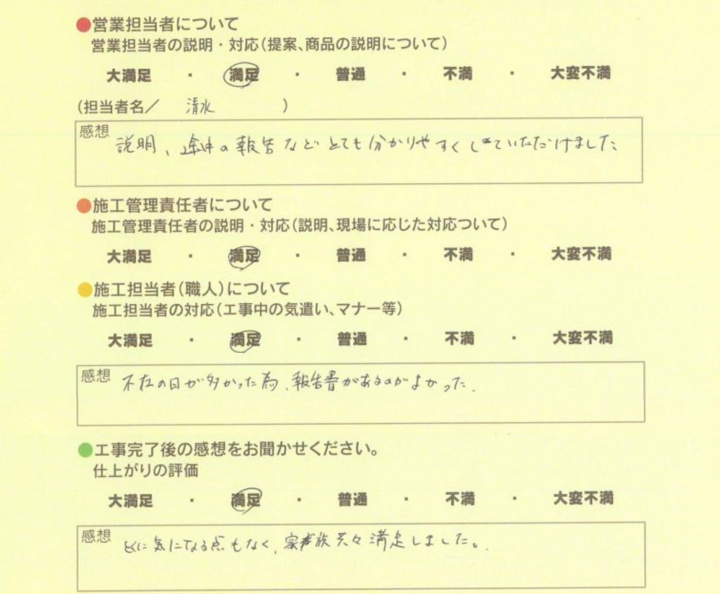 ●営業担当者について
営業担当者の説明・対応(提案、商品の説明について)
大満足 ・ 満足 ・ 普通 ・ 不満 ・ 大変不満
(担当者名／ 清水 )
感想 説明、途中の報告などとても分かりやすくしていただけました
●施工管理責任者について
施工管理責任者の説明・対応(説明、現場に応じた対応ついて)
大満足 ・ 満足 ・ 普通 ・ 不満 ・ 大変不満
●施工担当者(職人)について
施工担当者の対応(工事中の気遣い、マナー等)
大満足 ・ 満足 ・ 普通 ・ 不満 ・ 大変不満
感想 不在の日が多かった為、報告書があるのがよかった。
●工事完了後の感想をお聞かせください。
仕上がりの評価
大満足 ・ 満足 ・ 普通 ・ 不満 ・ 大変不満
感想 とくに気になる点もなく、家族共々満足しました。